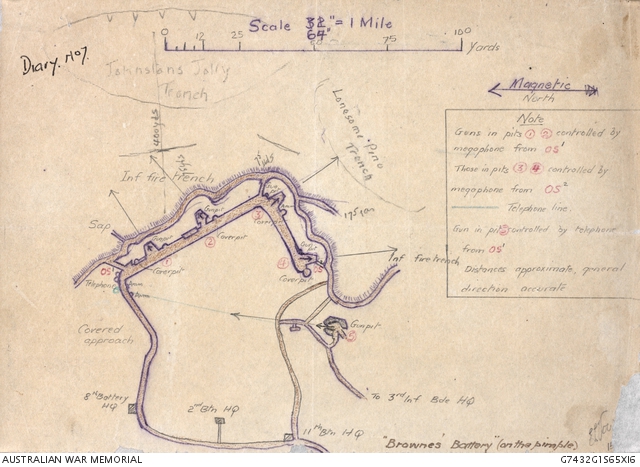 Scale 32" = 1 Mile
64"
0 12 25 75 100
Yards
Diary. No 7.
Johnstons Jolly
Trench
400yds
Lonesome Pine
Trench
Magnetic
North
Note
Guns in pits 1 2 controlled by
megaphone from OS¹
Those in pits 3 4 controlled by
megaphone from OS²
Telephone line.
Gun in pit 5 controlled by telephone
from OS¹
Distances approximate, general
direction accurate
Inf fire trench
Sap
Coverpit
1
2
Coverpit
3
Coverpit
4
Coverpit
OS¹
Telephone
OS
Inf fire trench
Gunpit
5
Covered
approach
8th Battery
HQ
2nd Btn HQ
11th Btn HQ
To 3rd Inf Bde HQ
"Browne's Battery" (on the pimple)
AUSTRALIAN WAR MEMORIAL
G7432G1S65XI6